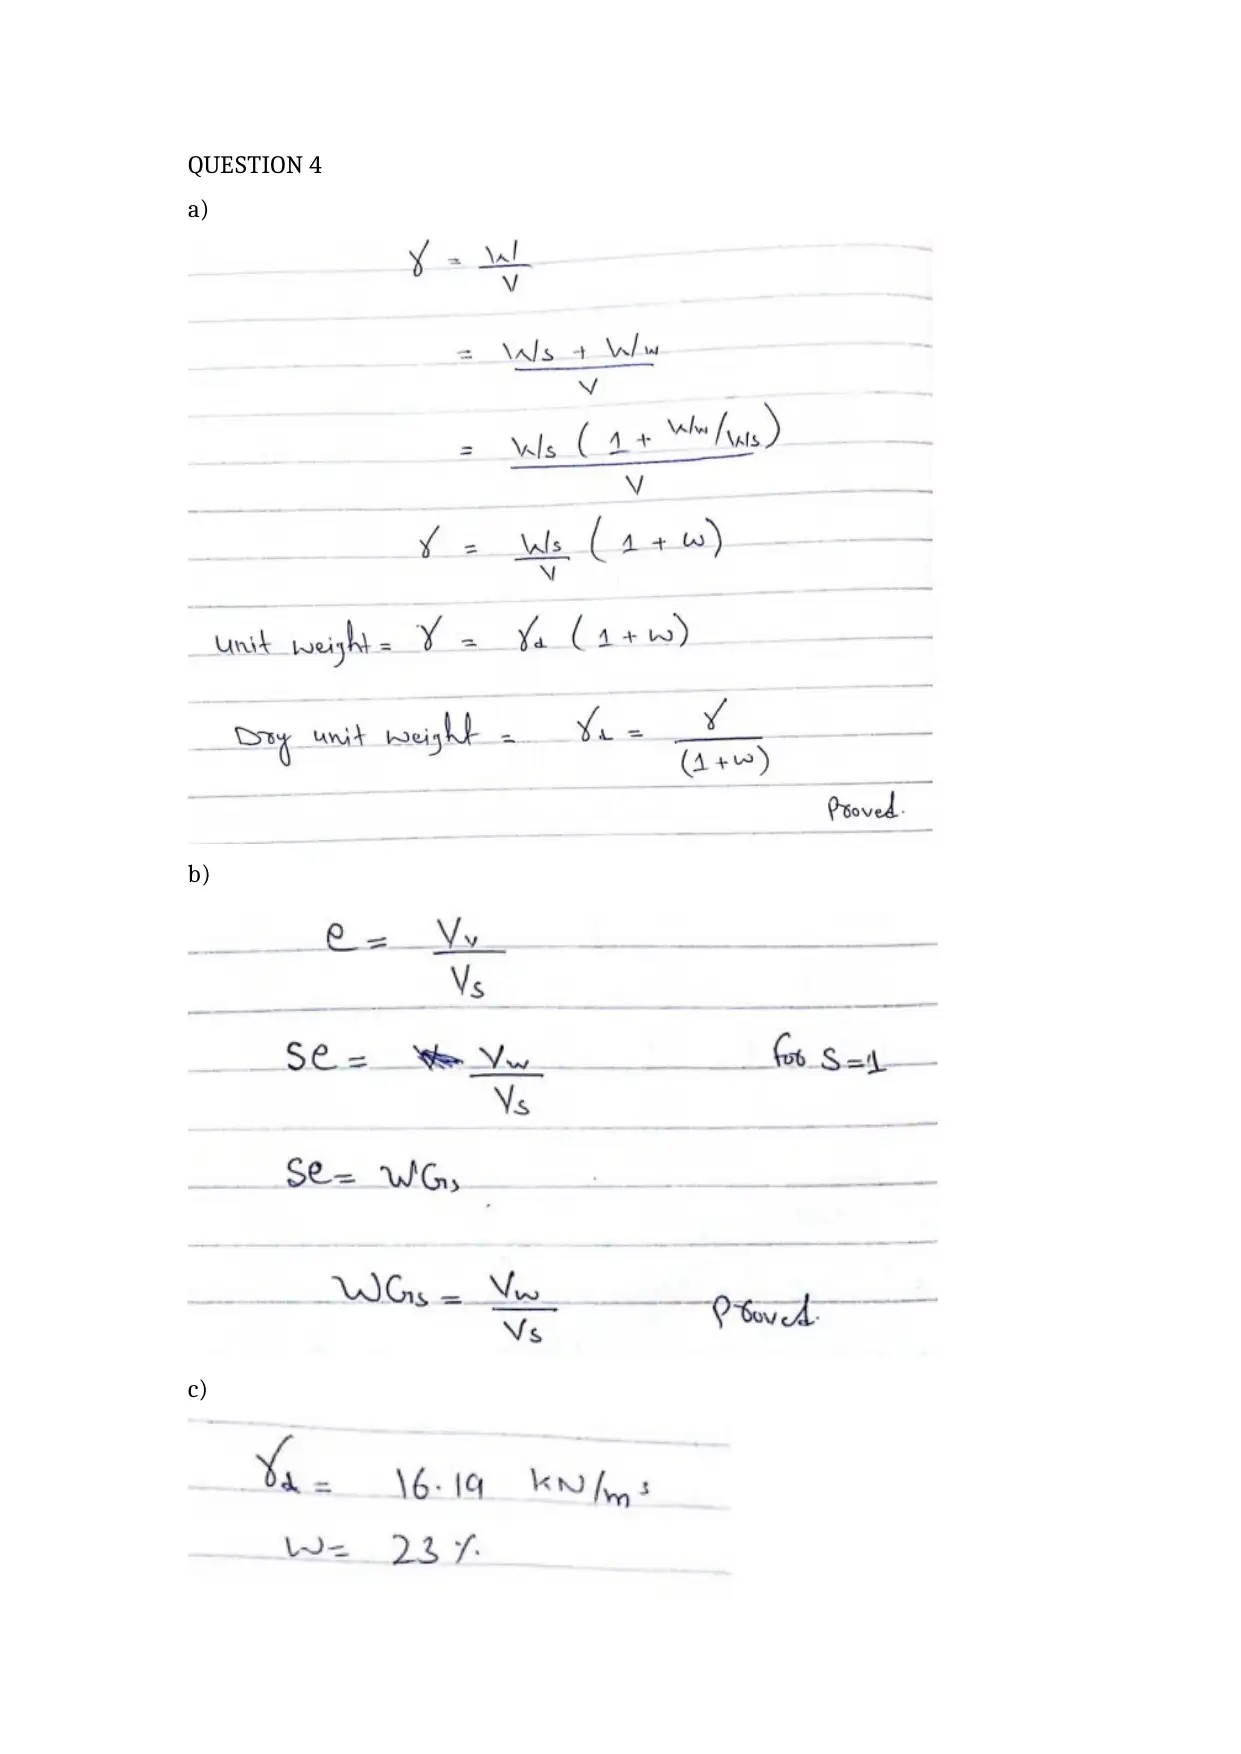 QUESTION 4
a)
γ = W/V
= Ws + Ww / V
= Ws ( 1 + Ww/Ws ) / V
γ = Ws/V ( 1 + w )
unit weight = γ = γd ( 1 + w )
Dry unit weight = γd = γ / (1 + w)
Proved.
b)
e = Vv / Vs
Se = Vw / Vs for S = 1
Se = WGs
WGs = Vw / Vs Proved.
c)
γd = 16.19 KN/m³
W = 23 %